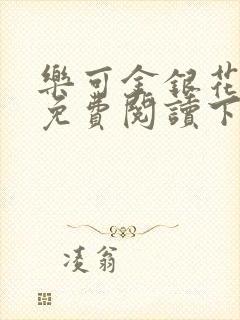 樂可金銀花
免費閱讀下
凌翁